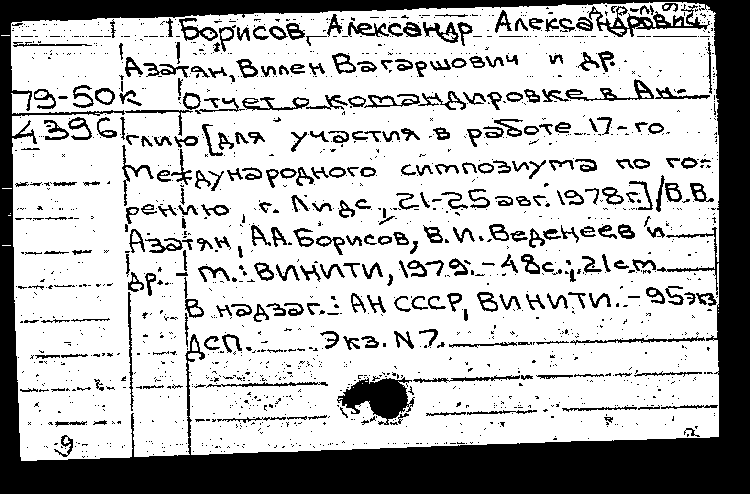 Борисов, Александр Александрович
Азатян, Вилен Вагаршович и др.
79-50к Отчет о командировке в Ан-
4396 глию [для участия в работе 17-го
Международного симпозиума по го-
рению, г. Лидс, 21-25 авг. 1978г.]/В.В.
Азатян, А.А. Борисов, В.И. Веденеев и
др. - М.: ВИНИТИ, 1979. - 48с.; 21см
В надзаг.: АН СССР, ВИНИТИ. - 95экз
ДСП. Экз. N7.
9